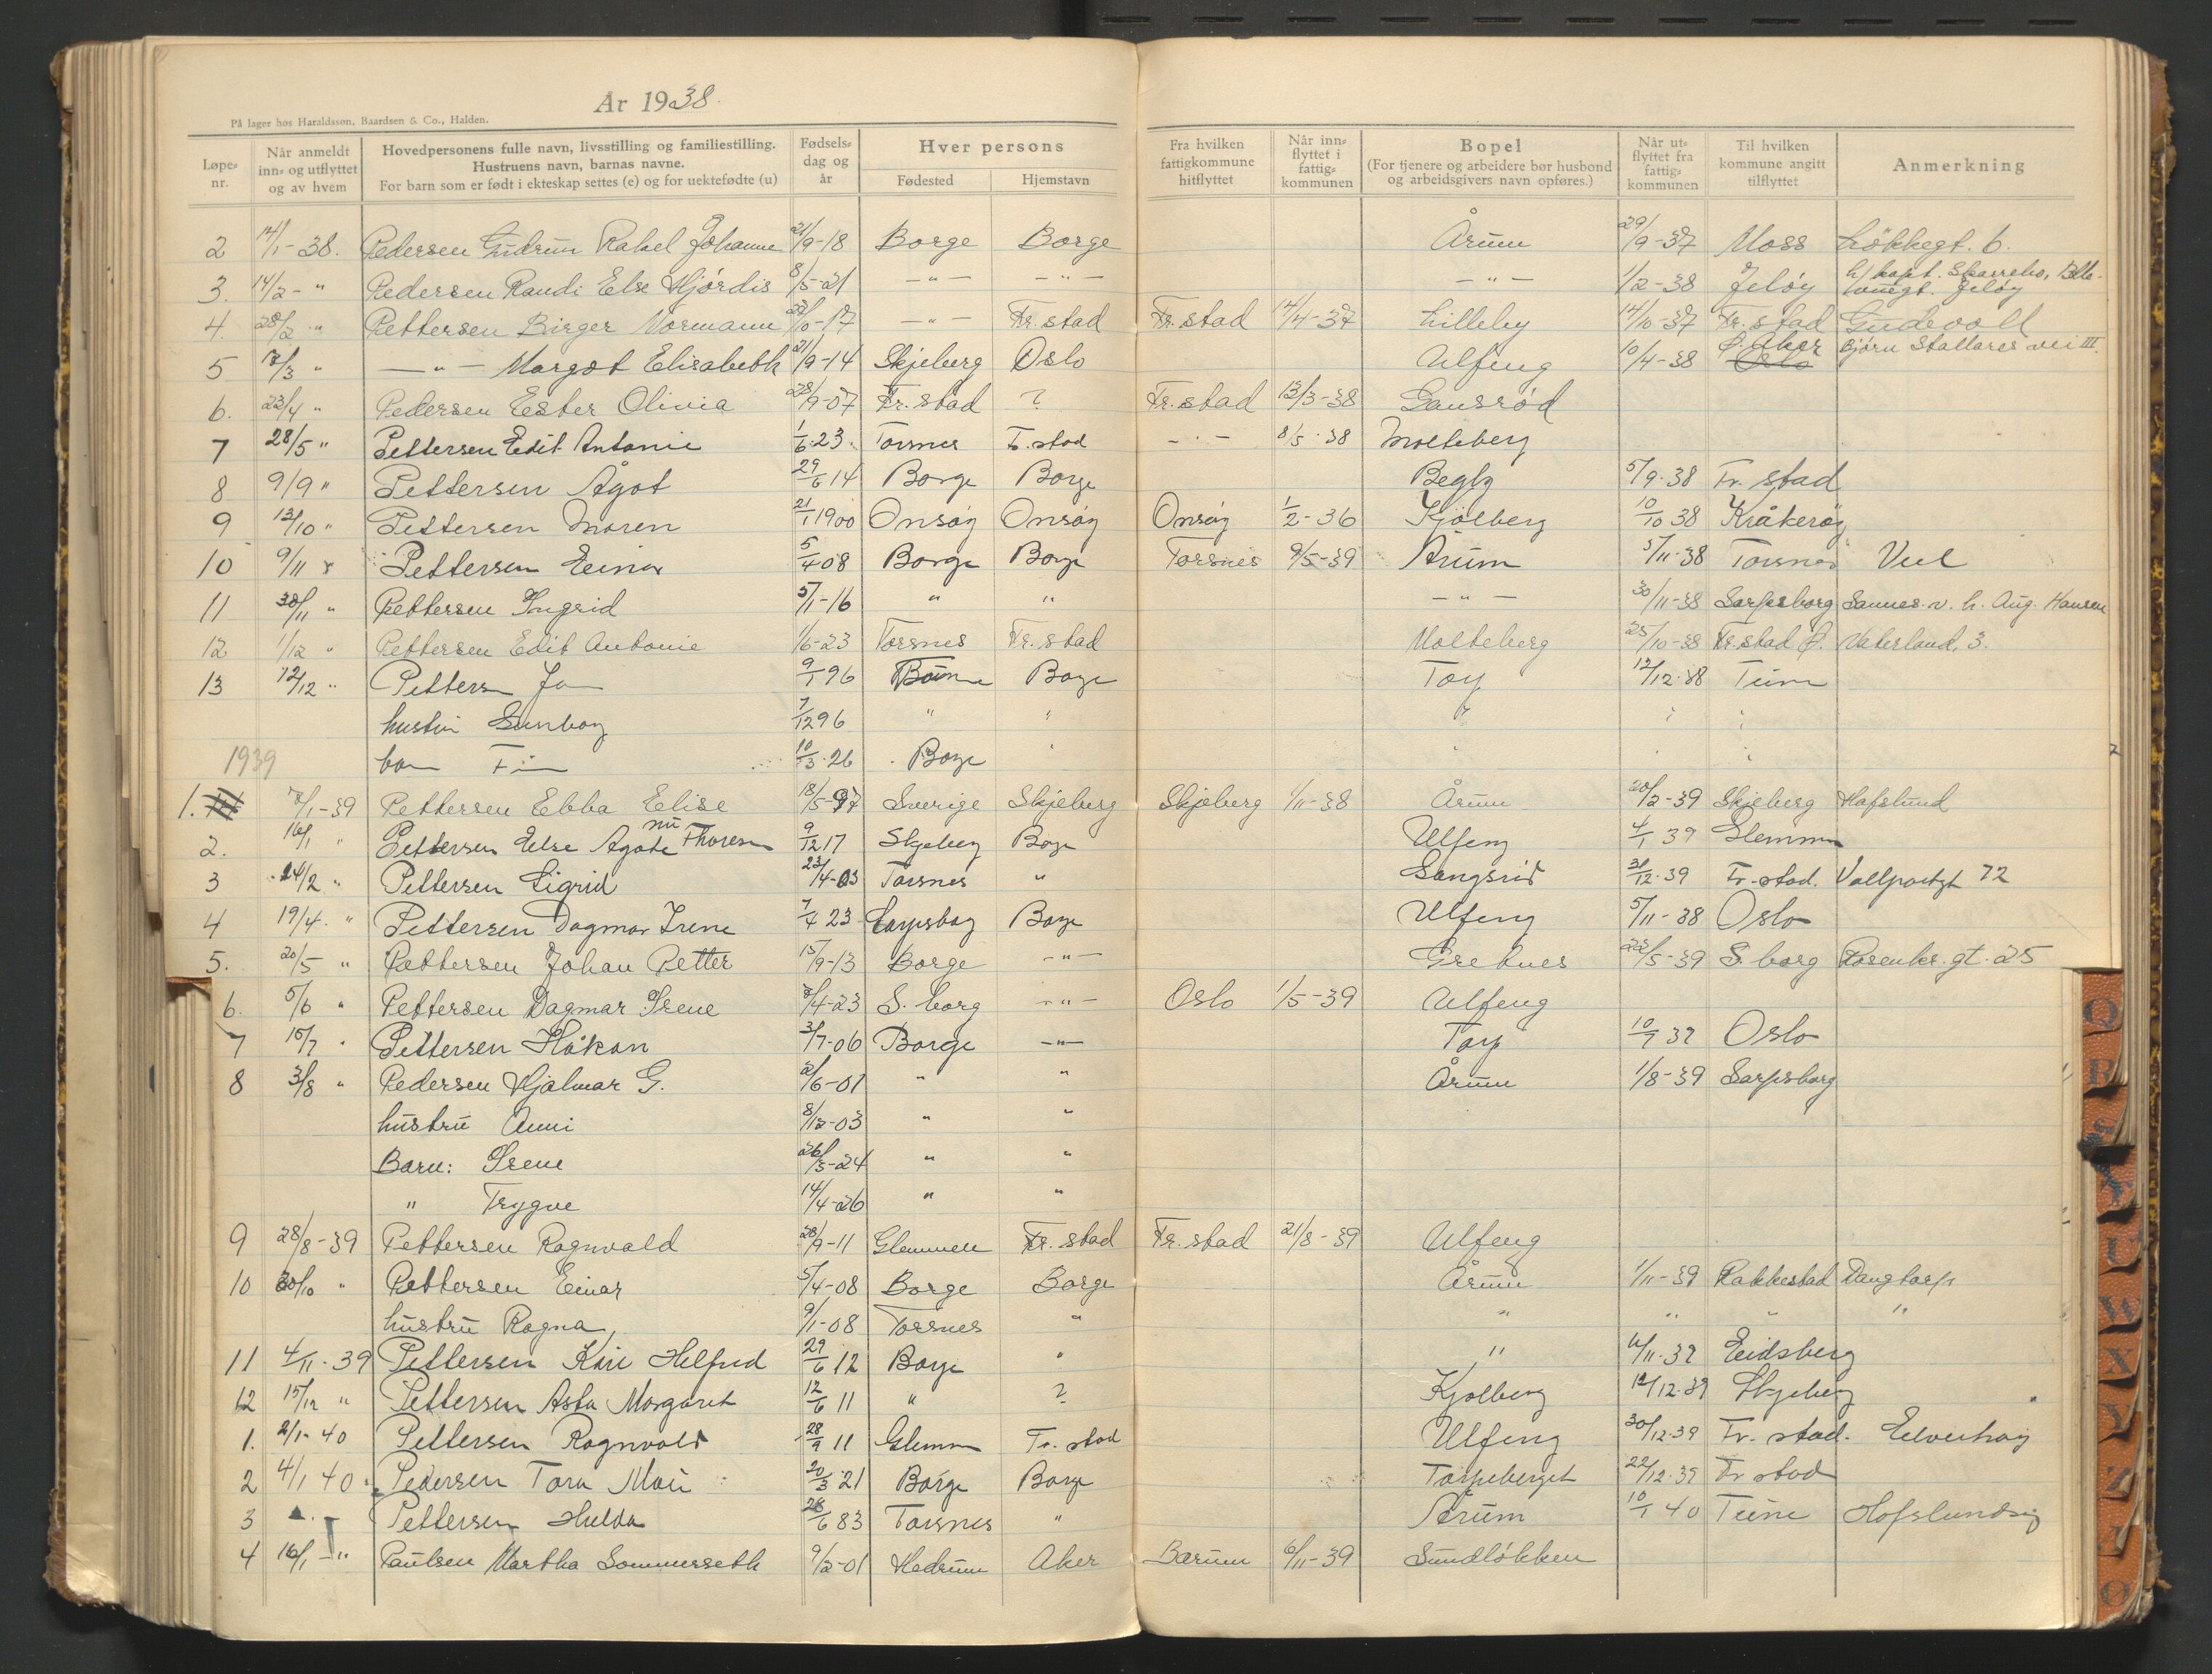 År 1938.
På lager hos Haraldsson, Baardsen & Co., Halden.
Løpe-nr. Når anmeldt inn- og utflyttet og av hvem Hovedpersonens fulle navn, livsstilling og familiestilling. Hustruens navn, barnas navne. For barn som er født i ekteskap settes (e) og for uektefødte (u) Fødsels-dag og år Hver persons Fødested Hjemstavn Fra hvilken fattigkommune hitflyttet Når inn-flyttet i fattig-kommunen Bopel (For tjenere og arbeidere bør husbond og arbeidsgivers navn opføres.) Når ut-flyttet fra fattig-kommunen Til hvilken kommune angitt tilflyttet Anmerkning
2 14/1-38. Pedersen Gudrun Rakel Johanne 21/9-18 Borge Borge Årum 29/9-37 Moss Løkkegt. 6.
3. 14/2 - " Pedersen Randi Else Hjørdis 8/5-21 -"- -"- -"- 1/2-38 Jeløy Jeløy
4. 28/2 " Pettersen Birger Normann /10-17 -"- Fr.stad Fr.stad 14/4-37 Lilleby 14/10-37 Fr.stad Gudevoll
5 7/3 " -"- Margot Elisabeth 21/9-14 Skjeberg Oslo Ulfeng 10/4-38 Ø. Aker Oslo Bjørn Stallares vei III.
6. 23/4 " Pedersen Ester Olivia 28/9-07 Fr.stad ? Fr.stad 12/3-38 Gansrød
7 28/5 " Pettersen Edit Antonie 1/6-23. Torsnes F.stad -"- 8/5-38 Molteberg
8 9/9 " Pettersen Ågot 29/6 14 Borge Borge Begby 5/9-38 Fr. stad
9 12/10 " Pettersen Maren 21/1 1900 Onsøy Onsøy Onsøy 1/2-36 Kjølberg 10/10 38 Kråkerøy
10 9/11 " Pettersen Einar 5/4 08 Borge Borge Torsnes 9/5-39 Årum 5/11-38 Torsnes
11 30/11 " Pettersen Ingrid 5/1-16 " " -"- 30/11-38 Sarpsborg Sannes v. h. Aug. Hansen
12 1/12 " Pettersen Edit Antonie 1/6-23 Torsnes Fr.stad Molteberg 25/10-38 Fr.stad Ø. Vaterland, 3.
13 12/12 " Pettersen 9/1 96 Borge Torp 12/12-38 Tune
hustru Gunborg 7/12 96 " " " " "
1939 barn Finn 10/3-26 Borge " " " "
1. 7/1-39 Pettersen Ebba Elise 18/5-97 Sverige Skjeberg Skjeberg 1/11-38 Årum 20/2-39 Skjeberg Hafslund
2. 16/1 " Pettersen Else Agate nu Thoresen 9/12 17 Skjeberg Borge Ulfeng 4/1 39 Glemmen
3 24/2 " Pettersen Sigrid 23/4-03 Torsnes " 31/12-39 Fr-stad. Vollportgt 72
4 19/4 " Pettersen Dagmar Irene 7/4 23 Sarpsborg Borge Ulfeng 5/11-38 Oslo
5. 20/5 " Pettersen Johan Petter 15/9-13 Borge -"- Gretnes 22/5-39 S.borg Rosenkr.gt. 25
6. 5/6 " Pettersen Dagmar Irene 7/4-23 S.borg -"- Oslo 1/5-39 Ulfeng
7 15/7 " Pettersen Håkon 3/7-06 Borge -"- Torp 10/7 39 Oslo
8 3/8 " Pedersen Hjalmar G. 2/6-01 " " Årum 1/8-39 Sarpsborg
hustru Anni 8/12-03 " "
Barn: Irene 26/3-24 " "
" Trygve 14/4-26 " "
9 28/8-39 Pettersen Ragnvald 28/9-11 Glemmen Fr.stad Fr.stad 21/8-39 Ulfeng
10 30/10 " Pettersen Einar 5/4-08 Borge Borge Årum 1/11-39 Rakkestad Dangtorp
hustru Ragna, 9/1-08 Torsnes " " " " "
11 4/11-39 Pettersen Kåre Helfred 29/6 12 Borge " " /11-39 Eidsberg
12 15/12 " Pettersen Asta Margaret 12/6 11 " ? Kjølberg 12/12-39 Skjeberg
1. 2/1-40 Pettersen Ragnvald 28/9 11 Glemm Fr. stad Ulfeng 30/12-39 Fr. stad.
2 4/1 40 Pedersen Tora Mari 20/3-21 Borge Borge Torpeberget 22/12-39 Fr stad
3 -"- Pettersen Hulda 28/6 83 Torsnes " Årum 10/1 40 Tune Hafslundsøy
4 16/1 -" Paulsen Martha Sommerseth 9/2-01 Hedrum Aker Bærum 6/11-39 Sundløkken